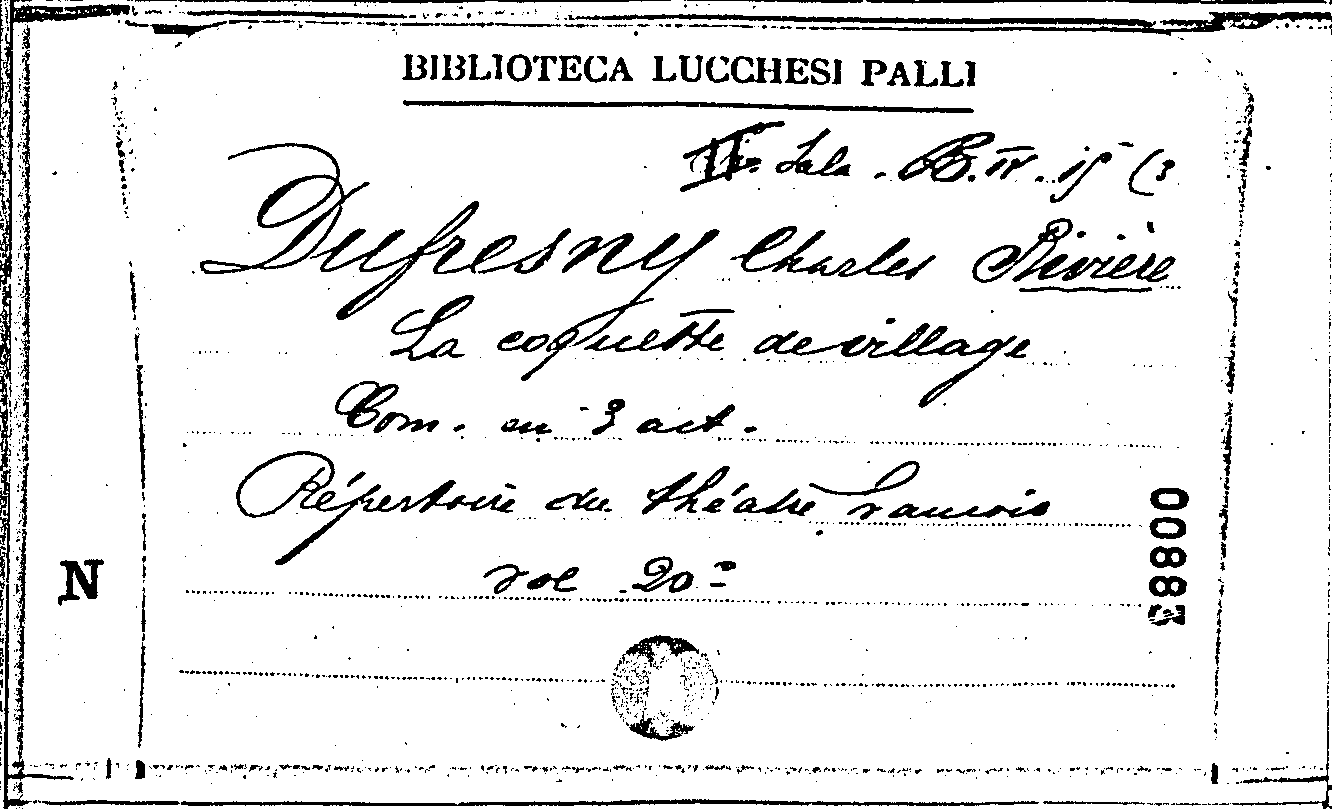 BIBLIOTECA LUCCHESI PALLI
IIa Sala. B. IV. 15 (3
Dufresny Charles Rivière
La coquette de village
Com. en 3 act.
Répertoire du théatre francois
vol 20º
N
00883